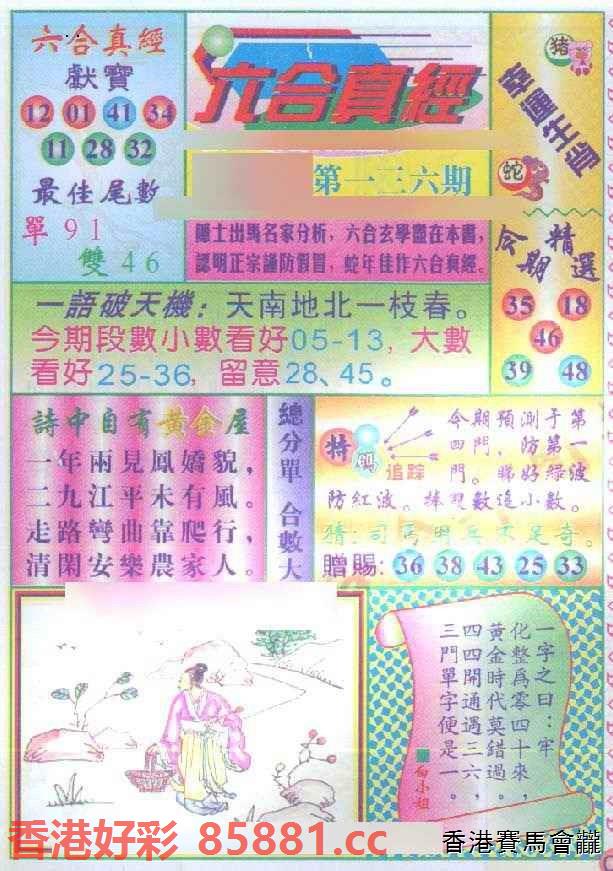 六合真經
獻寶
12 01 41 34
11 28 32
最佳尾數
單91
雙46
六合真經
第一三六期
隱士出馬名家分析，六合玄學盡在本書，
認明正宗謹防假冒，蛇年佳作六合真經。
豬
蛇
今期精選
35 18
46
39 48
一語破天機：天南地北一枝春。
今期段數小數看好05-13，大數
看好25-36，留意28、45。
詩中自有黃金屋
一年兩見鳳嬌貌，
二九江平未有風。
走路彎曲靠爬行，
清閑安樂農家人。
總分單 合數大
特碼
追踪
今期預測于第
四門，防第一
門。睇好綠波
防紅波。捧双數追小數。
猜：司馬明兵不足奇。
贈賜：36 38 43 25 33
一字之曰：牢
化整爲零四十來，
黃金時代莫錯過。
四四開通遇三六，
三門單字便是一。
白小姐
香港好彩 85881.cc
香港賽馬會